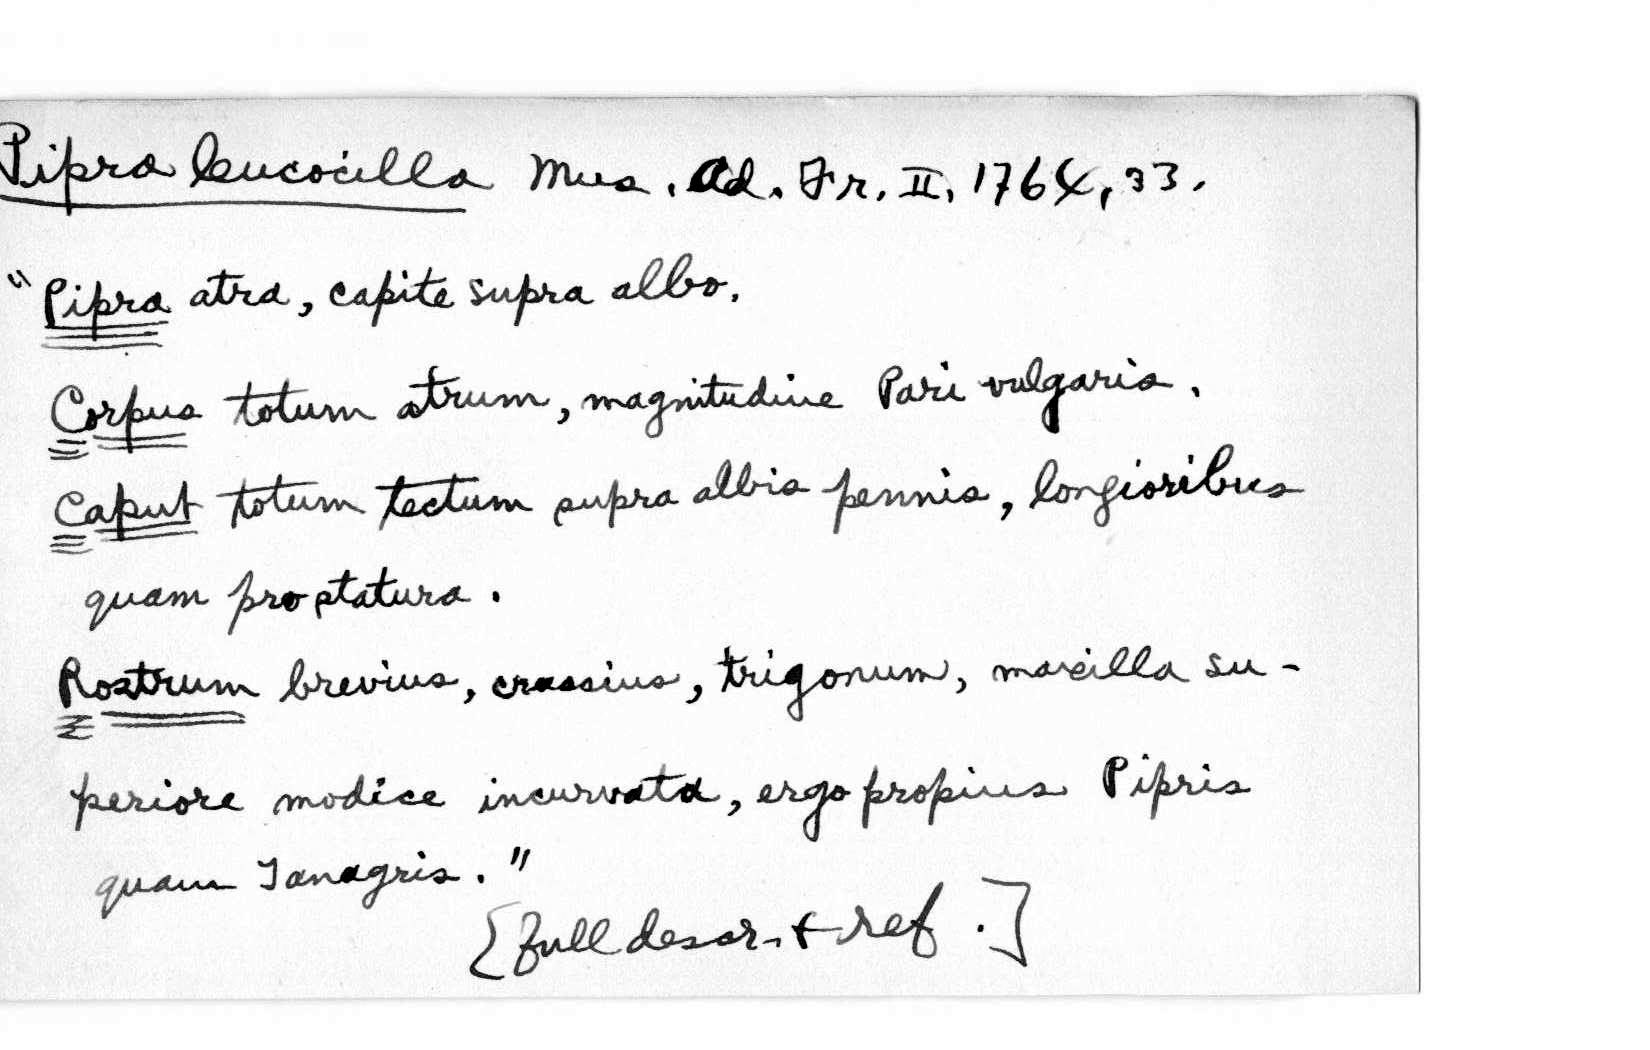 Pipra leucocilla Mus. Ad. Fr. II, 1764, 33.
"Pipra atra, capite supra albo.
Corpus totum atrum, magnitudine Pari vulgaris.
Caput totum tectum supra albis pennis, longioribus
quam pro statura.
Rostrum brevius, crassius, trigonum, maxilla su-
periore modice incurvata, ergo propius Pipris
quam Tanagris."
[full descr. + ref.]